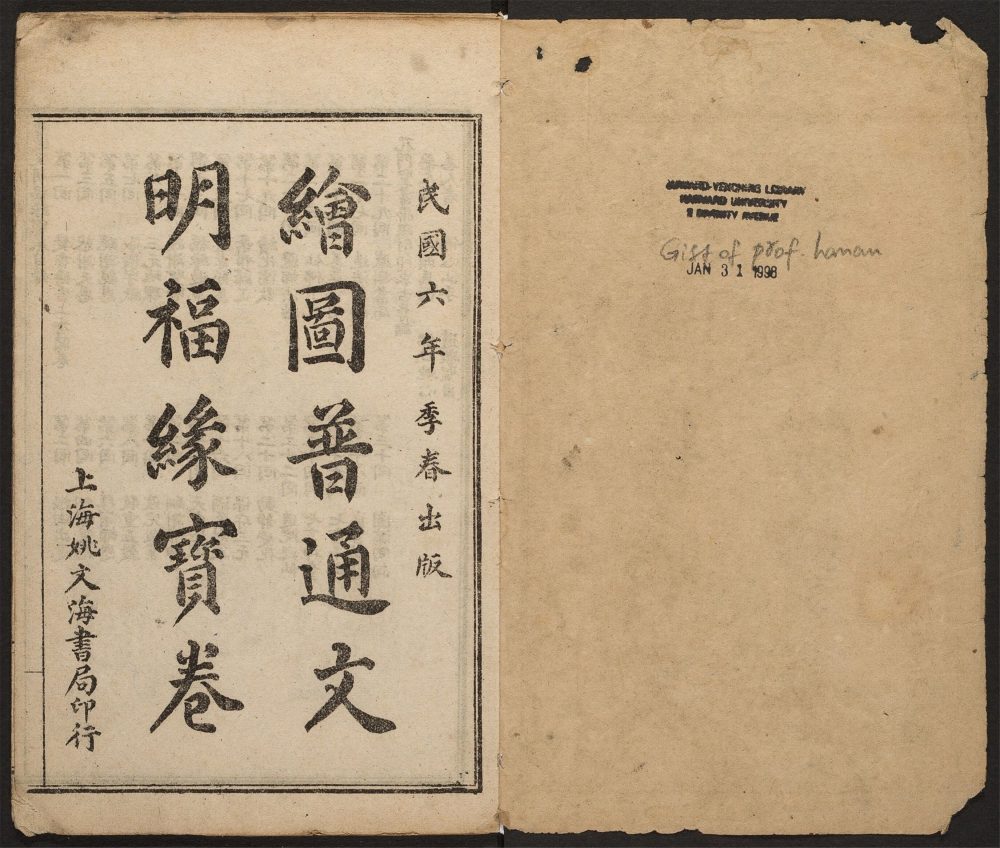 民國六年季春出版
繪圖普通文
明福緣寳卷
上海姚文海書局印行
HARVARD-YENCHING LIBRARY
HARVARD UNIVERSITY
2 DIVINITY AVENUE
Gift of prof. hanan
JAN 31 1998